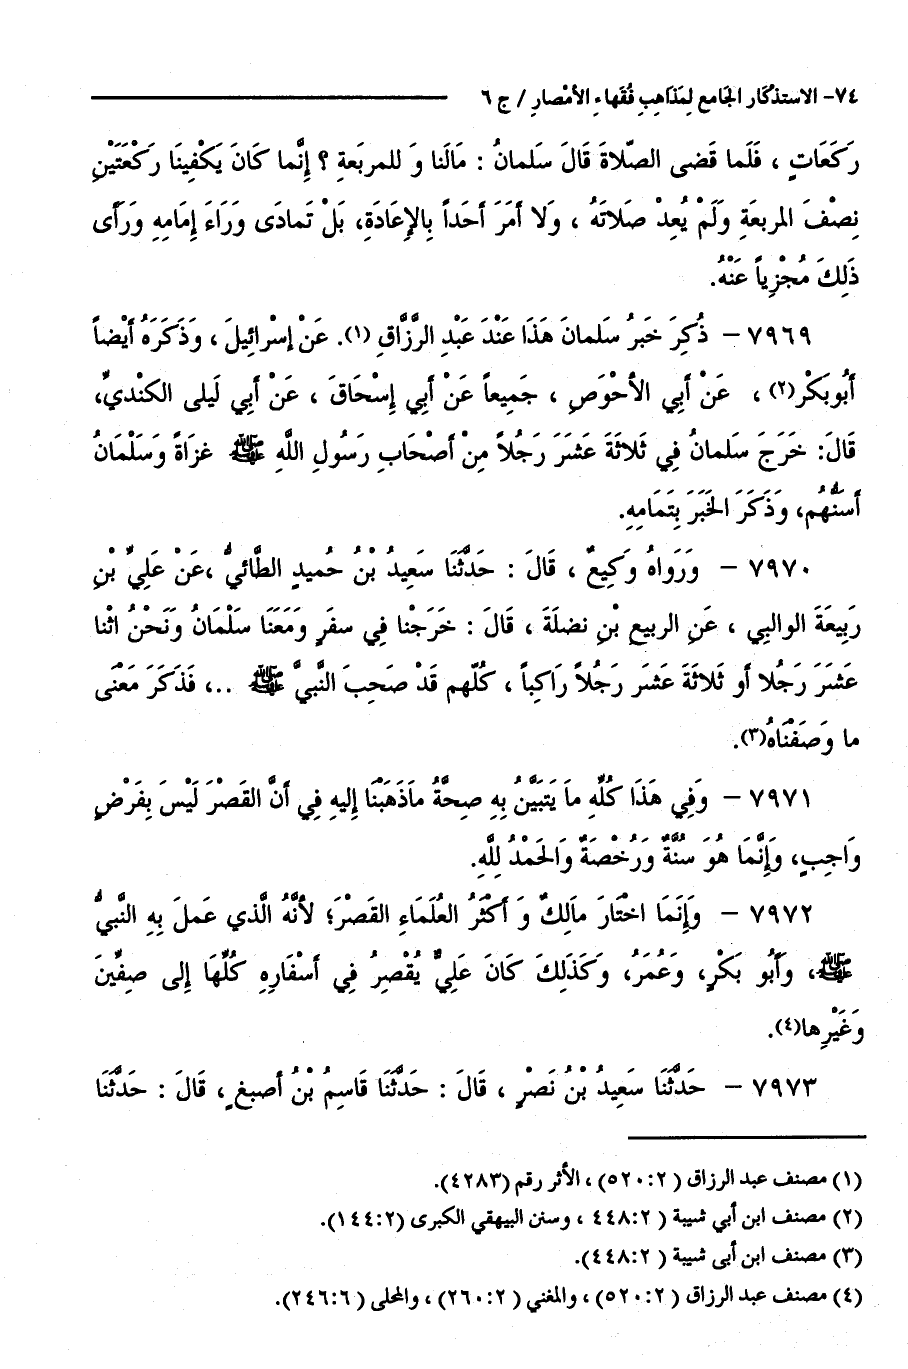 ٧٤- الاستذكار الجامع لِمَذاهِبِ فُقَهاء الأمْصارِ / ج ٦
رَكَعَاتٍ ، فَلَما قَضى الصَّلاةَ قَالَ سَلمانُ : مَالَنا وَ للمربَعةِ ؟ إنَّما كانَ يَكْفِينَا رَكْعَتَيْنِ
نِصْفَ المربعَةِ وَلَمْ يُعِدْ صَلاتَهُ ، وَلا أمَرَ أحَداً بِالإعَادَةِ، بَلْ تَمادَى وَرَاءَ إمَامِهِ وَرَأى
ذَلِكَ مُجْزِياً عَنْهُ.
٧٩٦٩ – ذُكِرَ خَبَرُ سَلمانَ هَذَا عَنْدَ عَبْدِ الرَّزَّاقِ (١). عَنْ إسْرائِيلَ ، وَذَكَرَهُ أيْضاً
أَبُوبَكْر(٢) ، عَنْ أبي الأحْوَصِ ، جَمِيعاً عَنْ أبي إسْحَاقَ ، عَنْ أبِي لَيلى الكنْديِّ،
قَالَ: خَرَجَ سَلمانُ فِي ثَلاثَةَ عَشَرَ رَجُلاً مِنْ أصْحَابِ رَسُولِ اللَّهِ ﷺ غزَاةً وَسَلْمَانُ
أسَنُّهُم، وَذَكَرَ الخَبَرَ بِتَمَامِهِ.
٧٩٧٠ – وَرَواهُ وَكِيعٌ ، قَالَ : حَدَّثَنَا سَعِيدُ بْنُ حُميدٍ الطَّائيُّ ،عَنْ عَلِيِّ بْنِ
رَبِيعَةَ الوالبِي ، عَنِ الربيعِ بْنِ نضلَةَ ، قَالَ : خَرَجْنا فِي سفَرٍ وَمَعَنَا سَلْمَانُ وَنَحْنُ اثْنا
عَشَرَ رَجُلا أو ثَلاثَةَ عشَر رَجُلاً رَاكِباً ، كُلّهم قَدْ صَحِبَ النَّبيَّ ﷺ ..، فَذكَرَ مَعْنَى
ما وَصَفْنَاهُ(٣).
٧٩٧١ – وَفِي هَذَا كُلِّهِ ما يَتَبَيَّنُ بِهِ صِحَّةُ ماَذَهَبْنَا إليهِ فِي أنَّ القَصْرَ لَيْسَ بِفَرْضٍ
وَاجِبٍ، وَإِنَّمَا هُوَ سُنَّةٌ وَرُخْصَةٌ وَالحَمْدُ لِلَّهِ.
٧٩٧٢ – وَإِنَمَا اخْتَارَ مالِكٌ وَ أكْثَرُ العُلَمَاءِ القَصْرَ؛ لأنَّهُ الَّذي عَملَ بِهِ النَّبيُّ
ﷺ، وَأَبُو بَكْرٍ، وَعُمَرُ، وَكَذَلِكَ كَانَ عَلِيٌّ يُقْصِرُ فِي أسْفَارِهِ كُلِّهَا إلى صِفِّينَ
وَغَيْرِها(٤).
٧٩٧٣ – حَدَّثَنَا سَعِيدُ بْنُ نَصْرٍ ، قَالَ : حَدَّثَنَا قَاسِمُ بْنُ أصبغٍ ، قَالَ : حَدَّثَنَا
(١) مصنف عبد الرزاق ( ٥٢٠:٢) ، الأثر رقم (٤٢٨٣).
(٢) مصنف ابن أبي شيبة ( ٤٤٨:٢ ، وسنن البيهقي الكبرى (١٤٤:٢).
(٣) مصنف ابن أبى شيبة ( ٤٤٨:٢).
(٤) مصنف عبد الرزاق ( ٥٢٠:٢) ، والمغني ( ٢٦٠:٢) ، والمحلى ( ٢٤٦:٦).